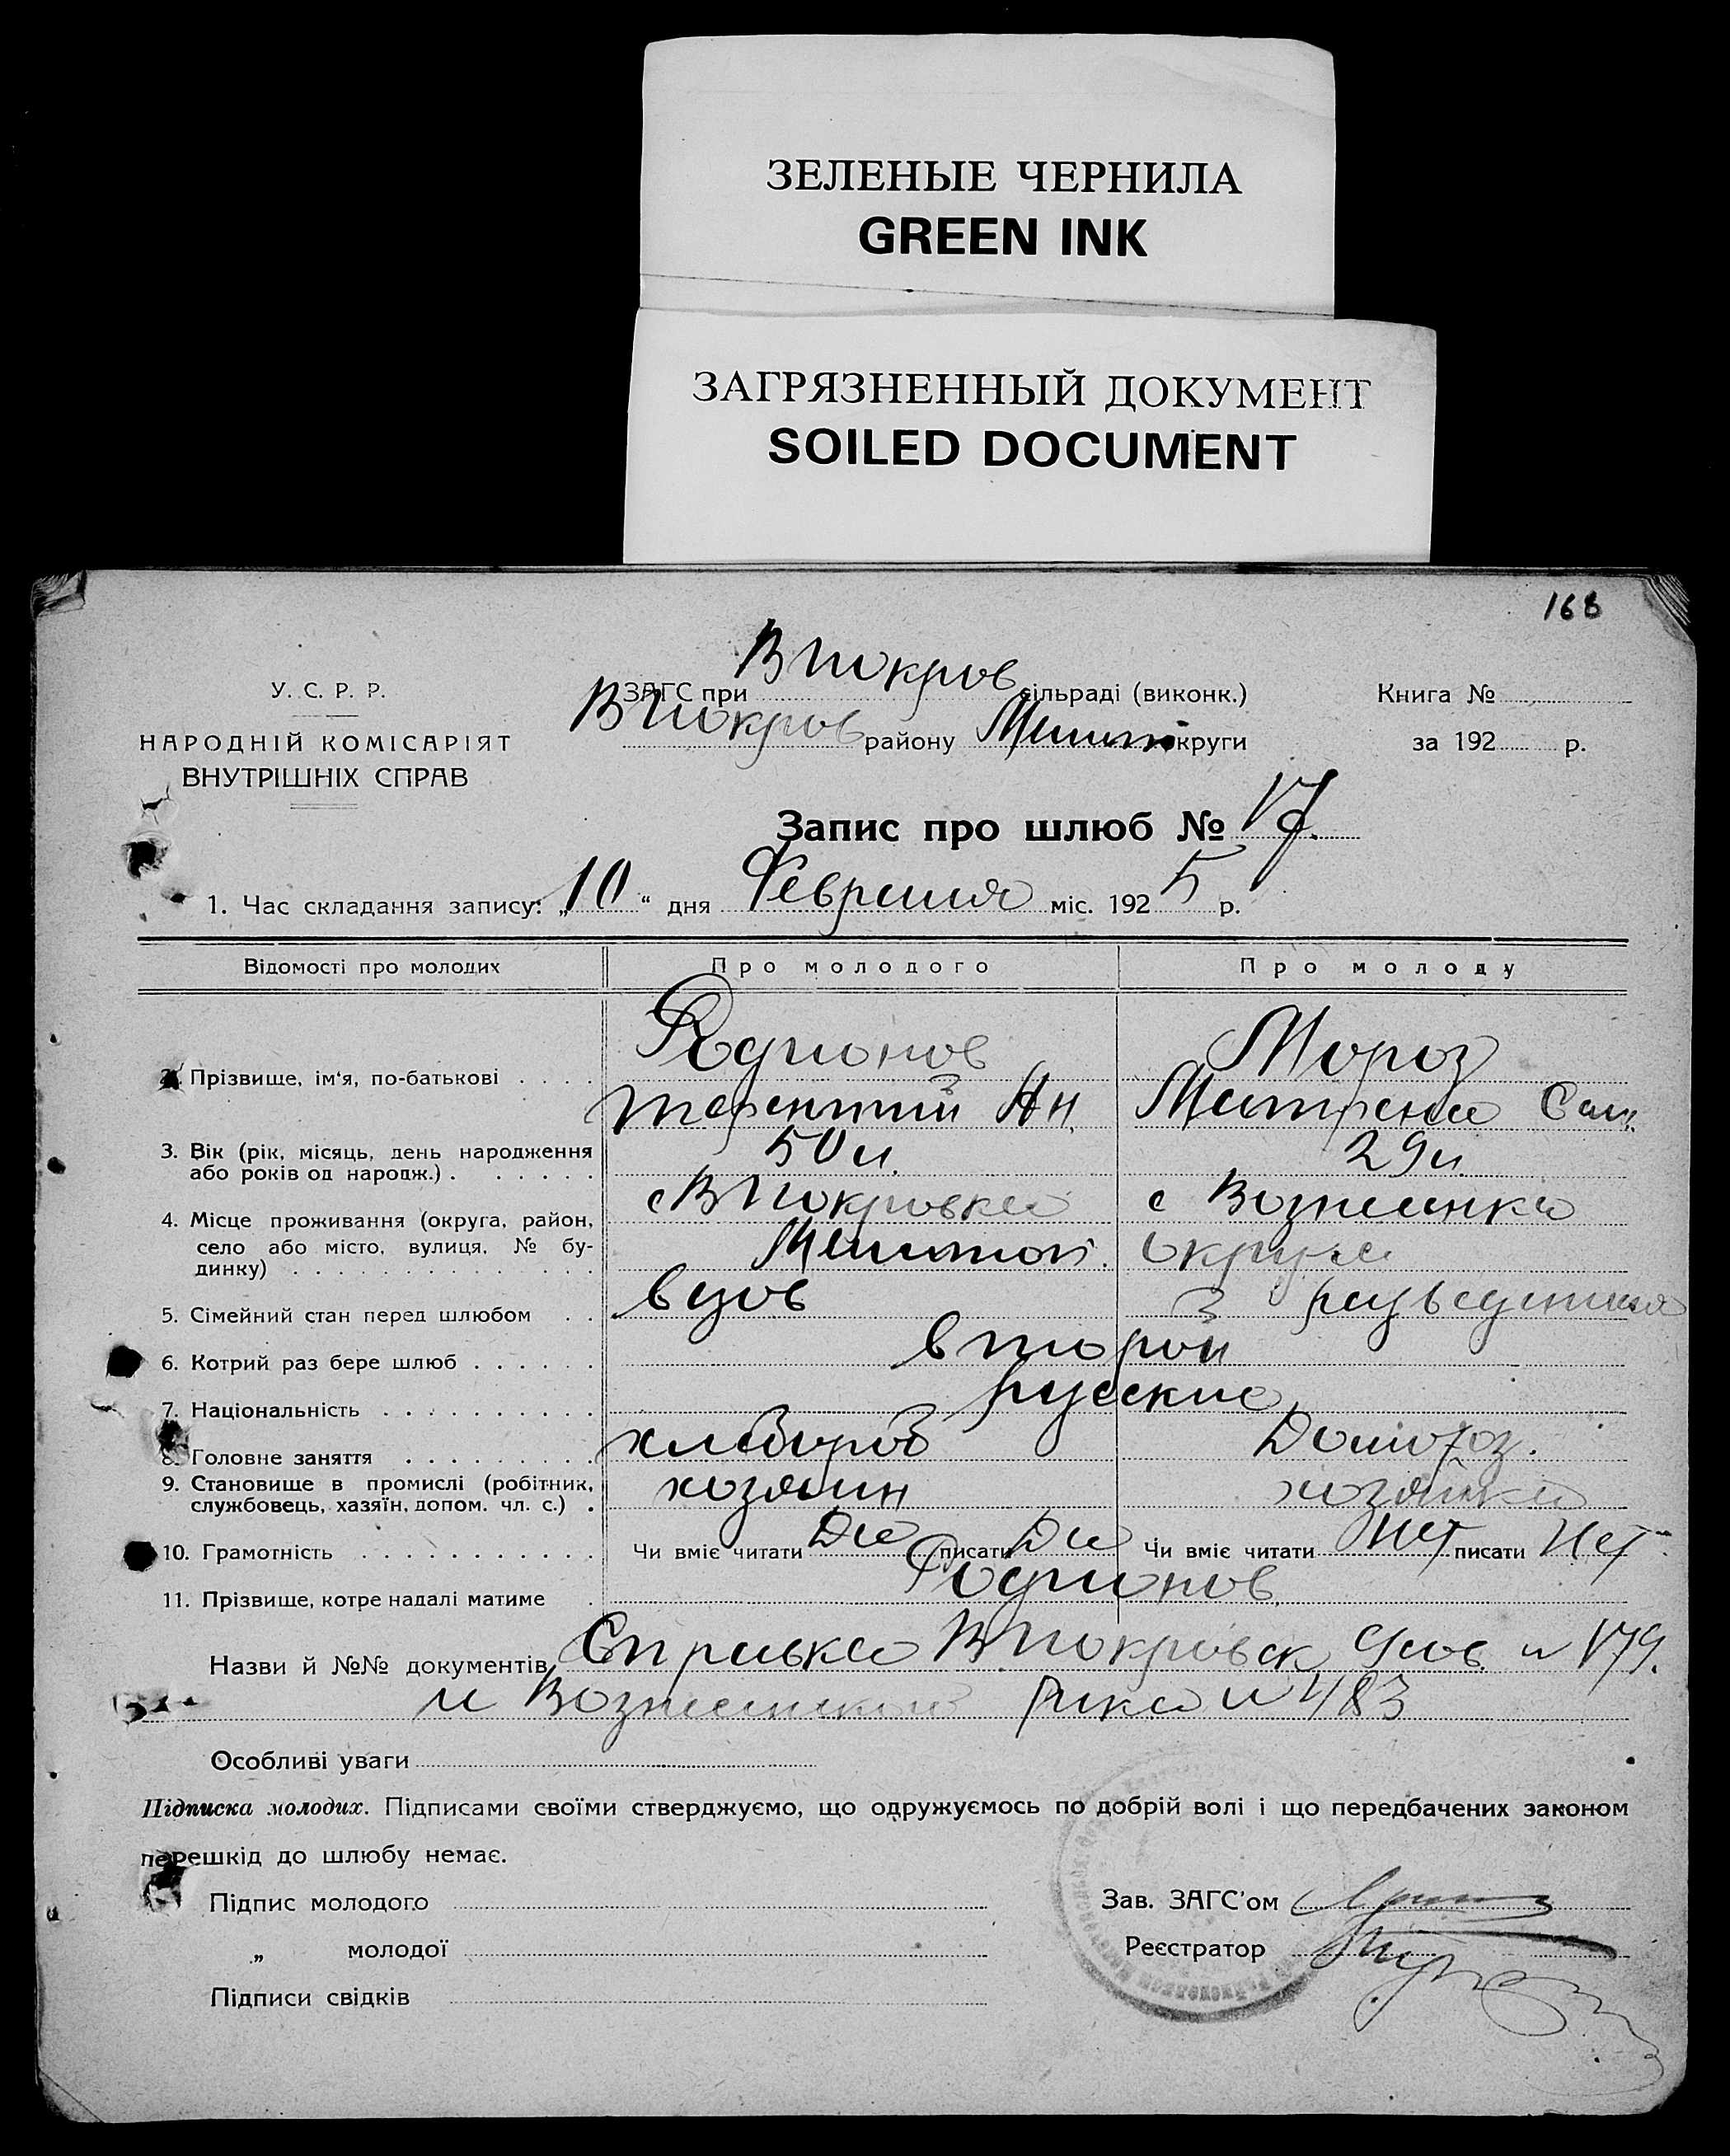 ЗЕЛЕНЫЕ ЧЕРНИЛА
GREEN INK
ЗАГРЯЗНЕННЫЙ ДОКУМЕНТ
SOILED DOCUMENT
168
У. С. Р. Р.
НАРОДНІЙ КОМІСАРІЯТ
ВНУТРІШНІХ СПРАВ
ЗАГС при В Покров сільраді (виконк.)
В Покров району Мелит округи
Книга №
за 192 р.
Запис про шлюб № 17.
1. Час складання запису: „10“ дня Февраля міс. 1925 р.
Відомості про молодих Про молодого Про молоду
2. Прізвище, ім'я, по-батькові Родионов Мороз
Терентий Ан. Матрена Сам.
3. Вік (рік, місяць, день народження 50 л. 29 л.
або років од народж.)
4. Місце проживання (округа, район, с В Покровка с Вознесенка
село або місто, вулиця, № бу- Мелитоп. округа
динку)
5. Сімейний стан перед шлюбом вдов разведенная
6. Котрий раз бере шлюб второй
7. Національність русские
8. Головне заняття хлебороб Домохоз.
9. Становище в промислі (робітник, хозяин хозяйка
службовець, хазяїн, допом. чл. с.)
10. Грамотність Чи вміє читати Да писати Да Чи вміє читати Нет писати Нет
11. Прізвище, котре надалі матиме Родионов
Назви й №№ документів Справка В. Покровск 179.
и Вознесенской Рика 483
Особливі уваги
Підписка молодих. Підписами своїми стверджуємо, що одружуємось по добрій волі і що передбачених законом
перешкід до шлюбу немає.
Підпис молодого
„ молодої
Підписи свідків
Зав. ЗАГС'ом
Реєстратор